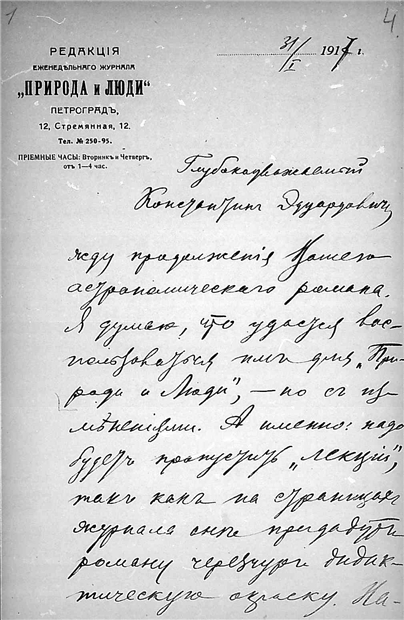 1
4
РЕДАКЦІЯ
ЕЖЕНЕДѢЛЬНАГО ЖУРНАЛА
„ПРИРОДА и ЛЮДИ“
ПЕТРОГРАДЪ,
12, Стремянная, 12.
Тел. № 250-95.
ПРІЕМНЫЕ ЧАСЫ: Вторникъ и Четвергъ,
отъ 1—4 час.
31/I 1917 г.
Глубокоуважаемый
Константинъ Эдуардовичъ,
жду продолженія Вашего
астрономическаго романа.
Я думаю, что удастся вос-
пользоваться имъ для „При-
роди и Люди“, — но съ из-
мѣненіями. А именно: надо
будетъ пропустить „лекціи“,
такъ какъ на страницахъ
журнала онѣ придадутъ
роману черезчуръ дидак-
тическую окраску. На-